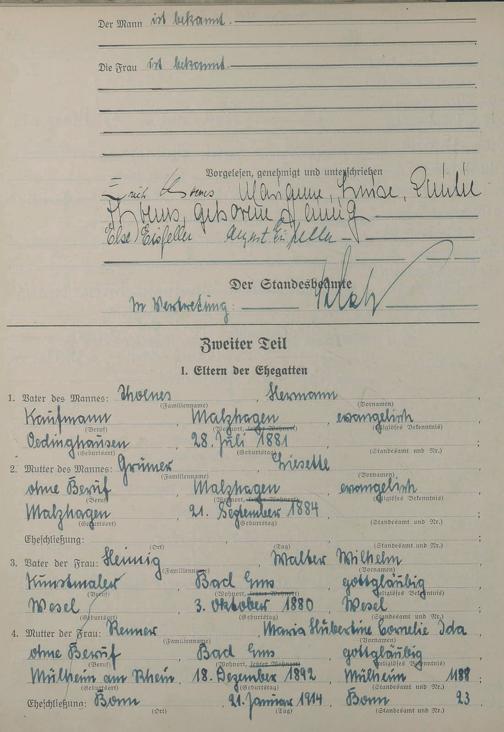 Der Mann ist bekannt.
Die Frau ist bekannt.
Vorgelesen, genehmigt und unterschrieben
Erich Thoenes Marianne, Luise,
Thoenes, geborene Hennig
Else Eisfeller August Eisfeller
Der Standesbeamte
In Vertretung:
Zweiter Teil
1. Eltern der Ehegatten
1. Vater des Mannes: Thoenes, Hermann
(Familienname) (Vornamen)
Kaufmann, Malzhagen, evangelisch
(Beruf) (Wohnort, letzter Wohnort) (Religiöses Bekenntnis)
Oedinghausen 28. Juli 1881
(Geburtsort) (Geburtstag) (Standesamt und Nr.)
2. Mutter des Mannes: Grümer, Liesette
(Familienname) (Vornamen)
ohne Beruf, Malzhagen, evangelisch
(Beruf) (Wohnort, letzter Wohnort) (Religiöses Bekenntnis)
Malzhagen, 21. September 1884
(Geburtsort) (Geburtstag) (Standesamt und Nr.)
Eheschließung:
(Ort) (Tag) (Standesamt und Nr.)
3. Vater der Frau: Hennig, Walter Wilhelm
(Familienname) (Vornamen)
Kunstmaler, Bad Ems, gottgläubig
(Beruf) (Wohnort, letzter Wohnort) (Religiöses Bekenntnis)
Wesel, 3. Oktober 1880, Wesel
(Geburtsort) (Geburtstag) (Standesamt und Nr.)
4. Mutter der Frau: Renner, Maria Hubertine Cornelie Ida
(Familienname) (Vornamen)
ohne Beruf, Bad Ems, gottgläubig
(Beruf) (Wohnort, letzter Wohnort) (Religiöses Bekenntnis)
Mülheim am Rhein, 18. Dezember 1892, Mülheim 1188
(Geburtsort) (Geburtstag) (Standesamt und Nr.)
Eheschließung: Bonn, 21. Januar 1914, Bonn 23
(Ort) (Tag) (Standesamt und Nr.)